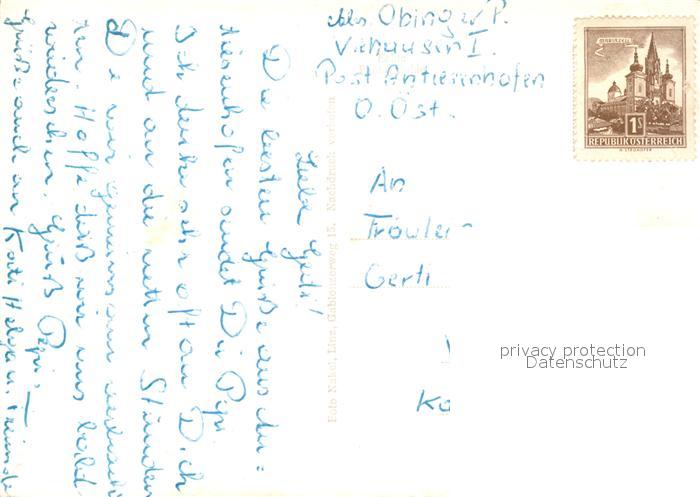 Abs. Obinger P.
Viehausen I.
Post Antiesenhofen
O. Öst.
MARIAZELL
1S
REPUBLIK ÖSTERREICH
An
Fräulei
Gerti
Ko
privacy protection
Datenschutz
Foto Nakel, Linz, Gablonzerweg 15, Nachdruck verboten
Liebe Gerti!
Die besten Grüße aus An:
tiesenhofen sendet Dir Pepi
Ich denke sehr oft an Dich
und an die netten Stunden
Die wir gemeinsam verbrach
ten. Hoffe daß wir uns bald
wiedersehen. Gruß Pepi
Grüße auch an Kati Helga u. Freunde